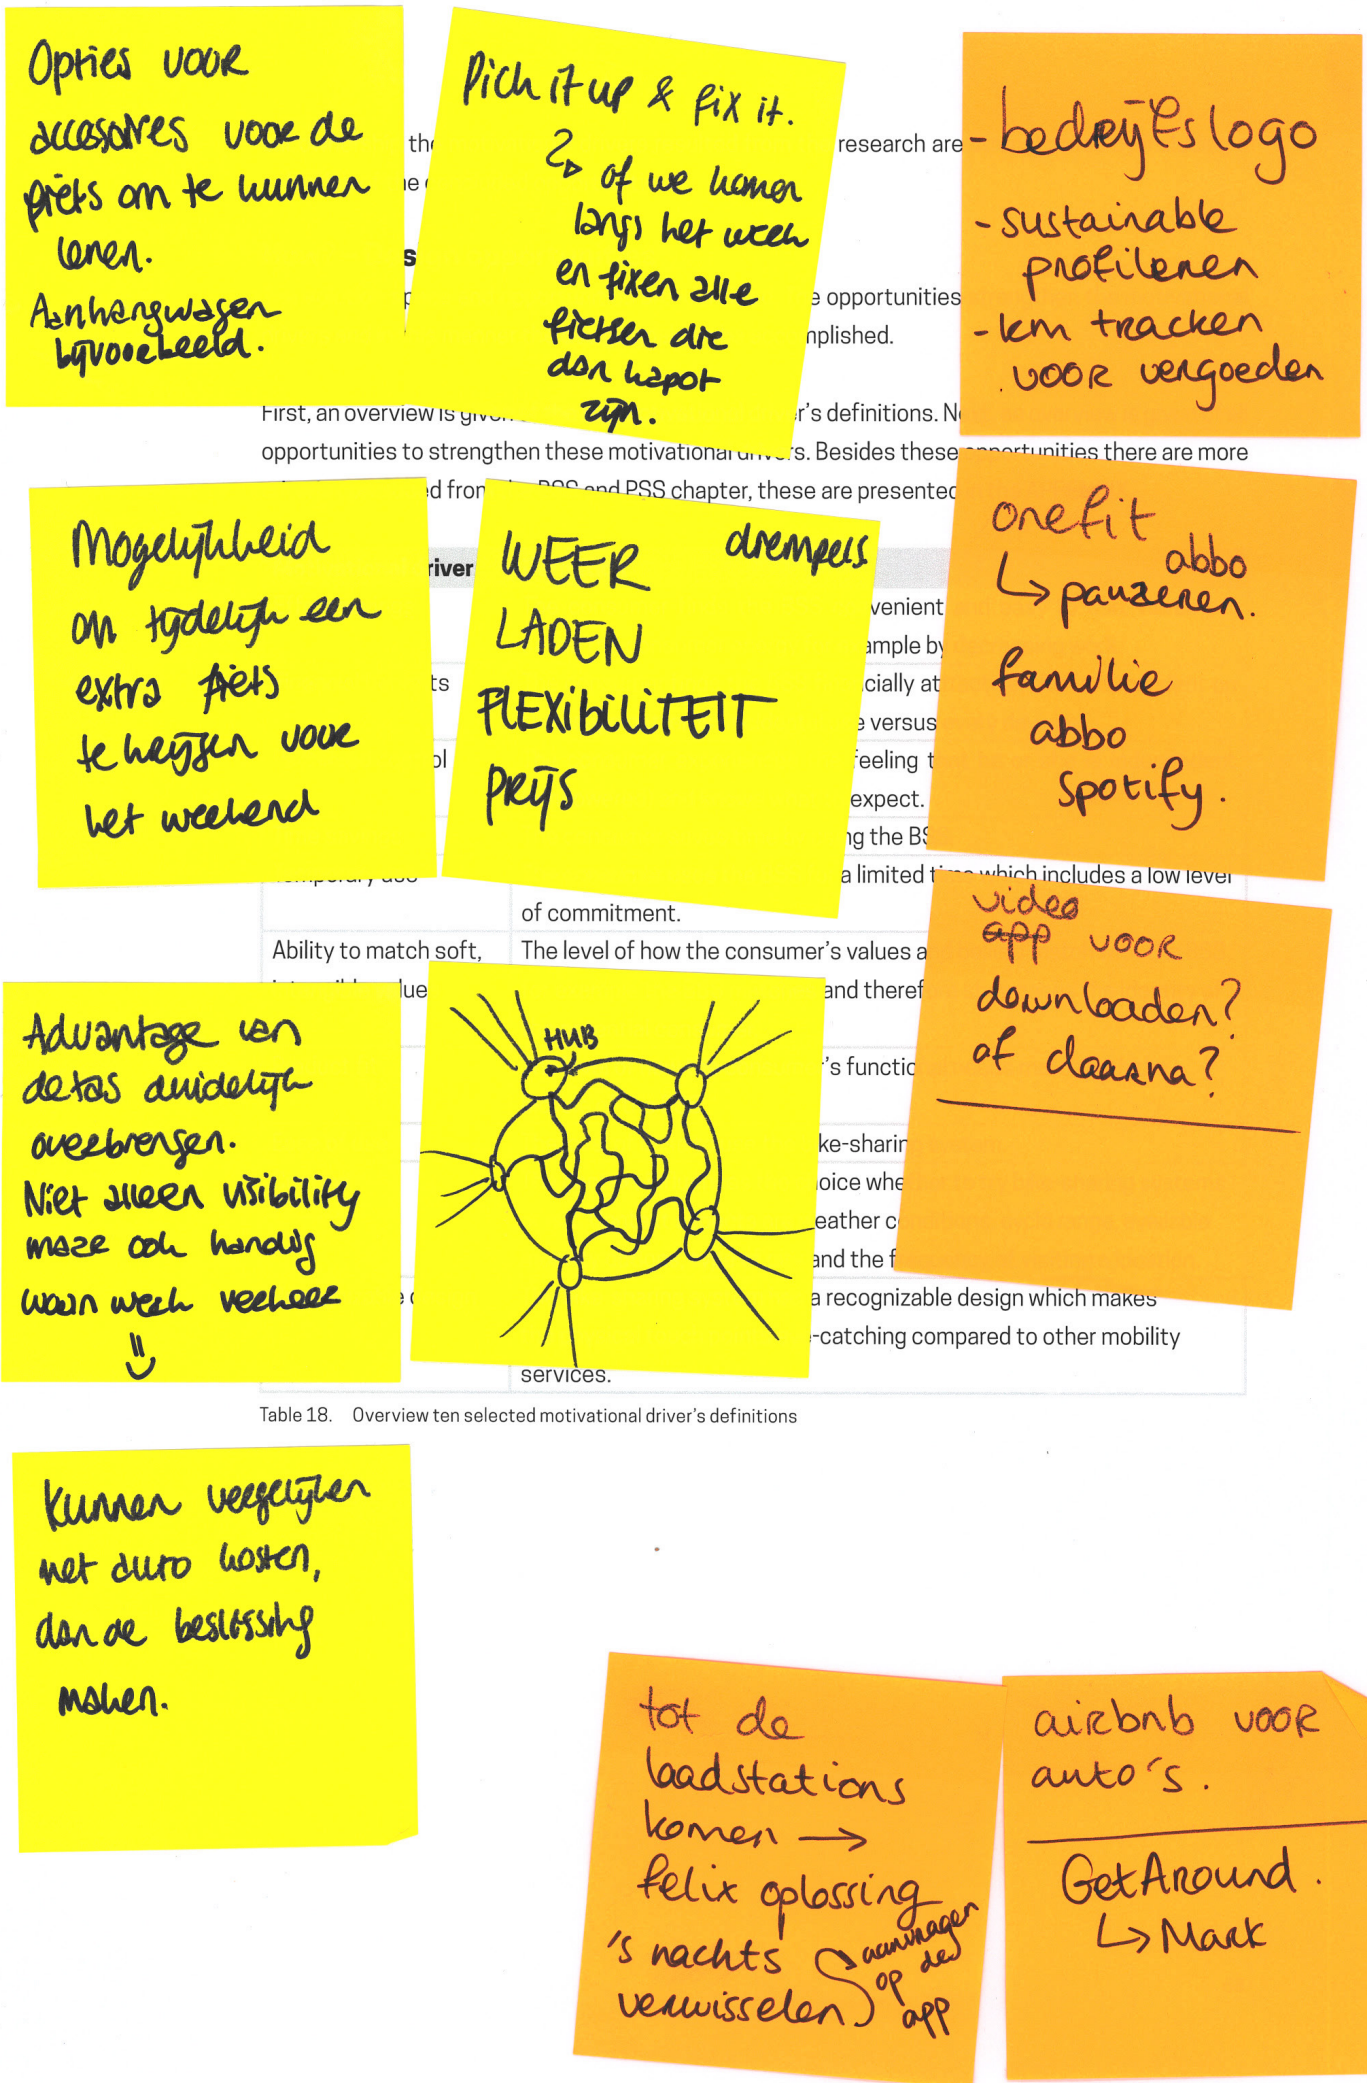 Opties voor
accesoires voor de
fiets om te kunnen
lenen.
Aanhangwagen
bijvoorbeeld.
Pick it up & fix it.
of we komen
langs het week
en fixen alle
fietsen die
dan kapot
zijn.
- bedrijfslogo
- sustainable
profileren
- km tracken
voor vergoeden
the
research are
s
e opportunities
mplished.
First, an overview is given
r's definitions.
opportunities to strengthen these motivational drivers. Besides these opportunities there are more
ed from the BSS and PSS chapter, these are presented
Mogelijkheid
om tijdelijk een
extra fiets
te krijgen voor
het weekend
drempels
WEER
LADEN
FLEXibiLiTEIT
PRIJS
onefit
abbo
↳ pauzeren.
familie
abbo
Spotify.
river
venient
ample by
ts
cially at
e versus
ol
feeling t
expect.
ng the BS
temporary use
a limited time which includes a low level
of commitment.
Ability to match soft,
The level of how the consumer's values a
lue
and theref
r's functio
ke-sharin
oice whe
eather c
and the f
a recognizable design which makes
-catching compared to other mobility
services.
video
app voor
downloaden?
of daarna?
Advantage van
de tas duidelijk
overbrengen.
Niet alleen visibility
maar ook handig
woon werk verkeer
HUB
Table 18. Overview ten selected motivational driver's definitions
Kunnen vergelijken
met auto kosten,
dan de beslissing
maken.
tot de
laadstations
komen →
felix oplossing
's nachts
verwisselen
aanvragen
op de
app
airbnb voor
auto's.
GetAround.
↳ Mark